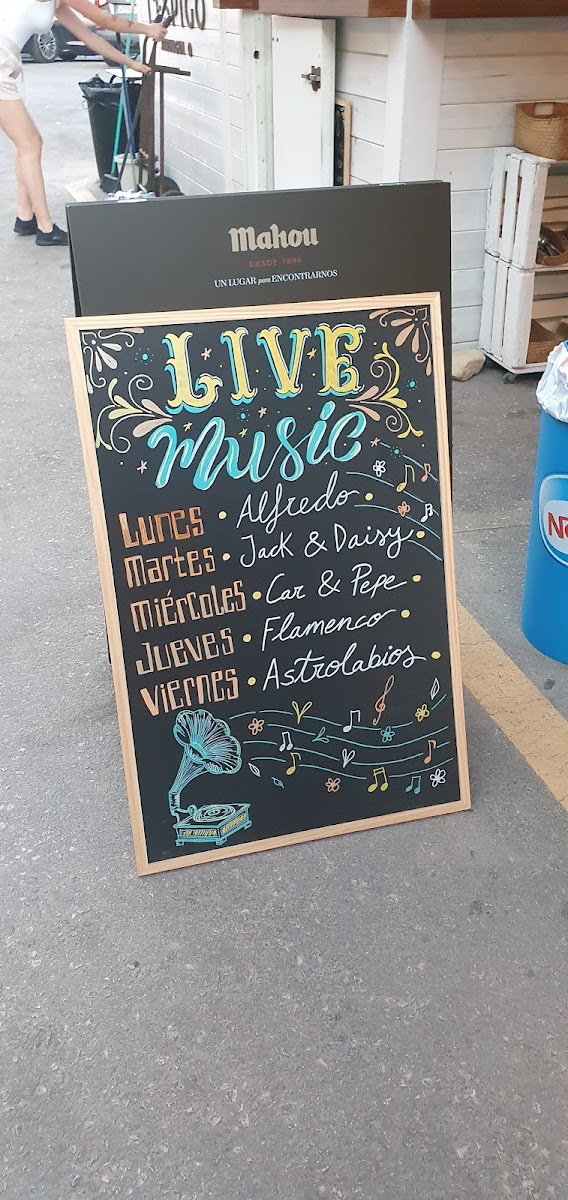 Mahou
DESDE 1890
UN LUGAR para ENCONTRARNOS
LIVE
Music
Lunes • Alfredo •
Martes • Jack & Daisy •
Miércoles • Car & Pepe •
Jueves • Flamenco •
Viernes • Astrolabios •